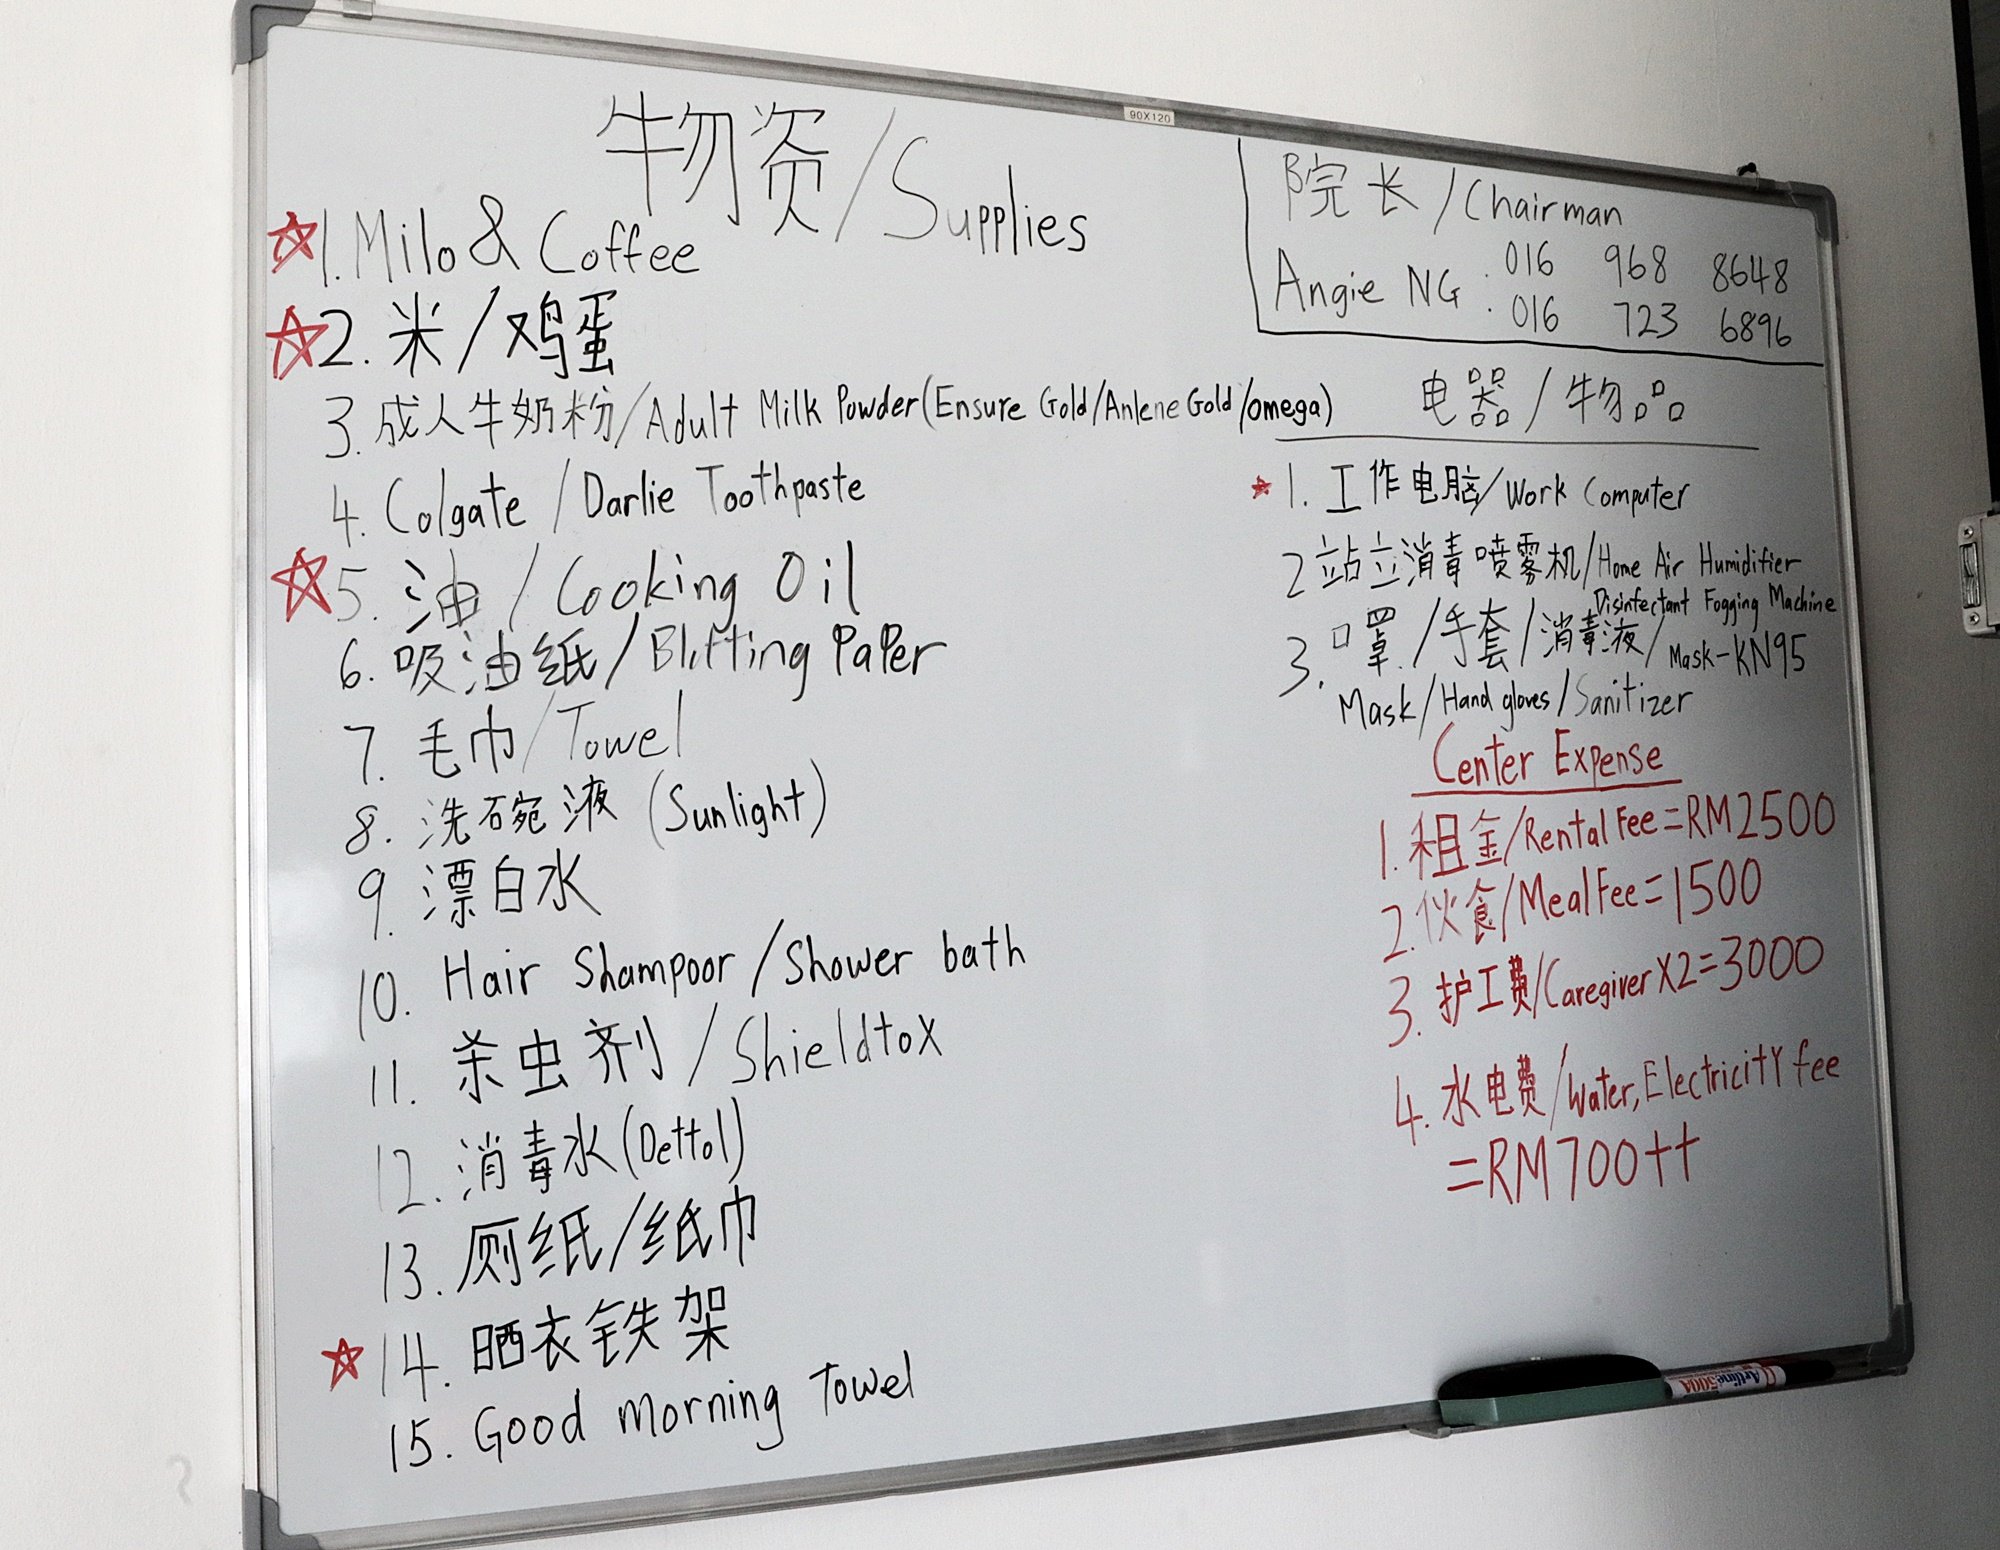 90X120
物资/Supplies
1. Milo & Coffee
2. 米/鸡蛋
3. 成人牛奶粉/Adult Milk Powder(Ensure Gold/Anlene Gold/omega)
4. Colgate/Darlie Toothpaste
5. 油/Cooking Oil
6. 吸油纸/Blitting Paper
7. 毛巾/Towel
8. 洗碗液(Sunlight)
9. 漂白水
10. Hair Shampoor/Shower bath
11. 杀虫剂/Shieldtox
12. 消毒水(Dettol)
13. 厕纸/纸巾
14. 晒衣铁架
15. Good Morning Towel
院长/Chairman
Angie NG: 016 968 8648
016 723 6896
电器/物品
1. 工作电脑/Work Computer
2 站立消毒喷雾机/Home Air Humidifier
Disinfectant Fogging Machine
3. 口罩/手套/消毒液/Mask-KN95
Mask/Hand gloves/Sanitizer
Center Expense
1. 租金/Rental Fee=RM2500
2. 伙食/Meal Fee=1500
3. 护工费/Caregiver X2=3000
4. 水电费/Water, Electricity fee
=RM700++
Artline 500A